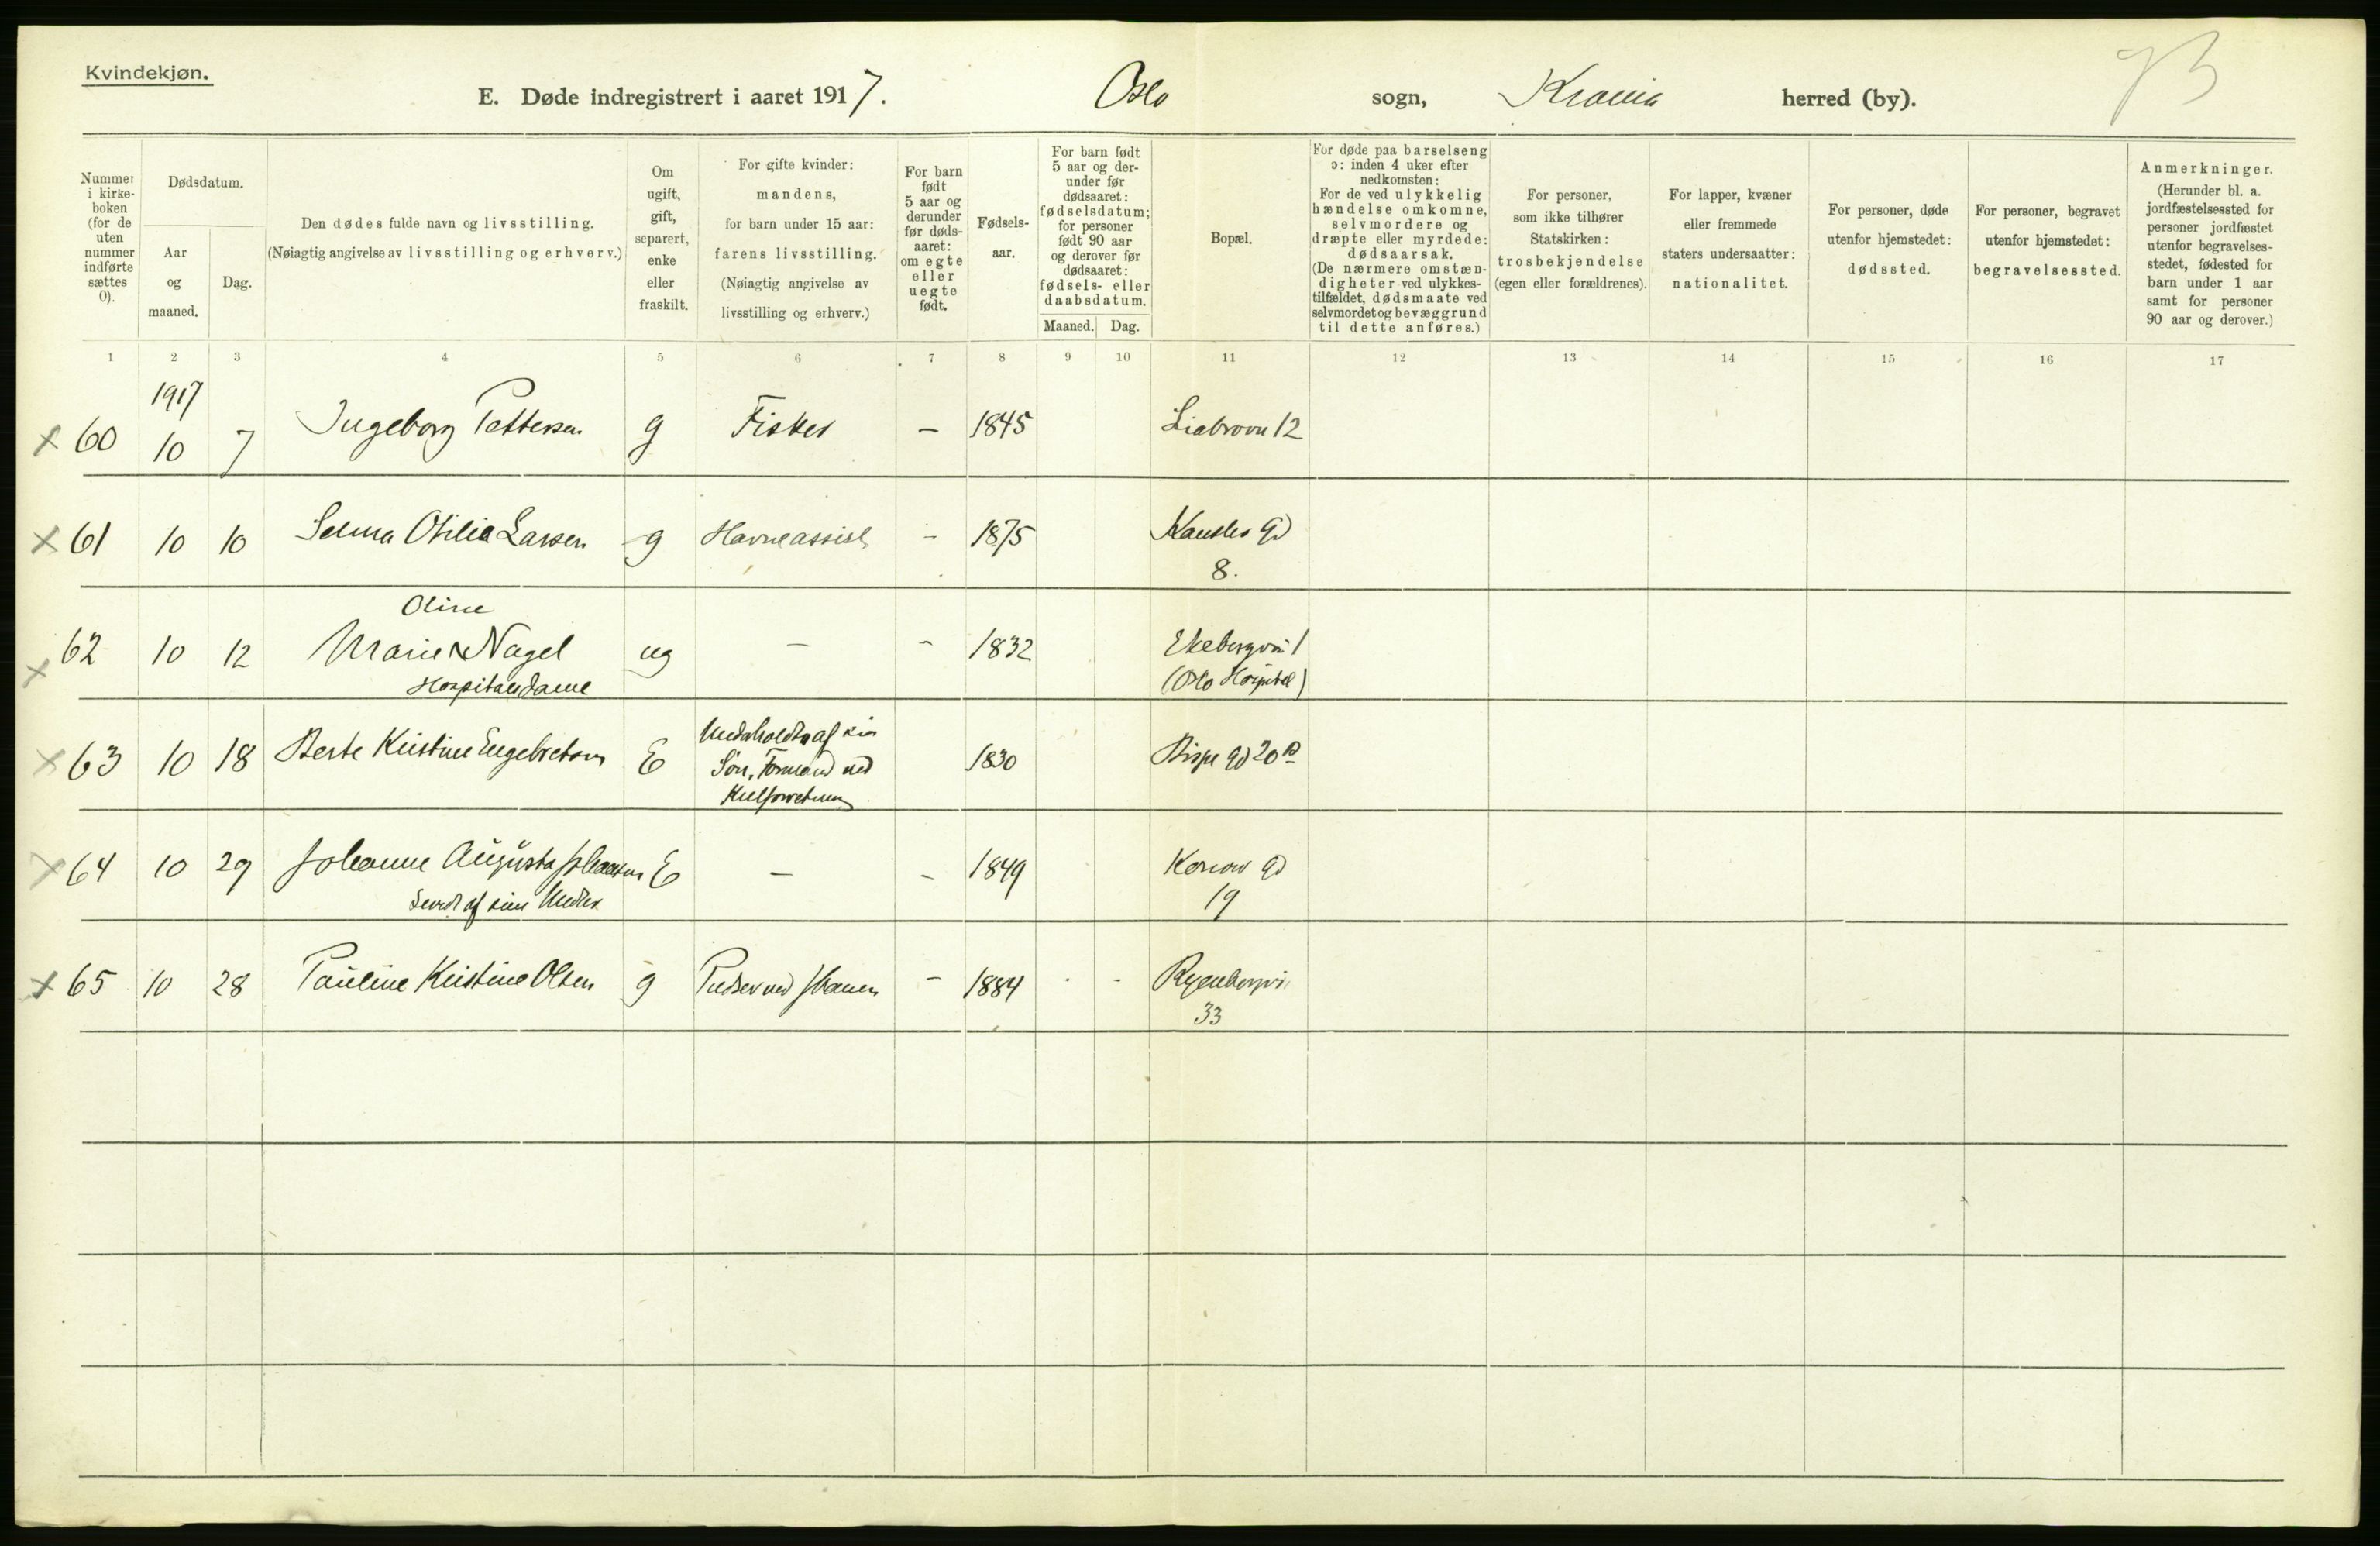 Kvindekjøn.
E. Døde indregistrert i aaret 1917. Oslo sogn, Krania herred (by).
Nummer i kirke-boken (for de uten nummer indførte sættes 0).
Dødsdatum.
Aar og maaned.
Dag.
Den dødes fulde navn og livsstilling.
(Nøiagtig angivelse av livsstilling og erhverv.)
Om ugift, gift, separert, enke eller fraskilt.
For gifte kvinder: mandens, for barn under 15 aar: farens livsstilling. (Nøiagtig angivelse av livsstilling og erhverv.)
For barn født 5 aar og derunder før døds-aaret: om egte eller uegte født.
Fødsels-aar.
For barn født 5 aar og der-under før dødsaaret: fødselsdatum; for personer født 90 aar og derover før dødsaaret: fødsels- eller daabsdatum.
Maaned. Dag.
Bopæl.
For døde paa barselseng ɔ: inden 4 uker efter nedkomsten: For de ved ulykkelig hændelse omkomne, selvmordere og dræpte eller myrdede: dødsaarsak. (De nærmere omstæn-digheter ved ulykkes-tilfældet, dødsmaate ved selvmordet og bevæggrund til dette anføres.)
For personer, som ikke tilhører Statskirken: trosbekjendelse (egen eller forældrenes).
For lapper, kvæner eller fremmede staters undersaatter: nationalitet.
For personer, døde utenfor hjemstedet: dødssted.
For personer, begravet utenfor hjemstedet: begravelsessted.
Anmerkninger. (Herunder bl. a. jordfæstelsessted for personer jordfæstet utenfor begravelses-stedet, fødested for barn under 1 aar samt for personer 90 aar og derover.)
1 2 3 4 5 6 7 8 9 10 11 12 13 14 15 16 17
1917
x 60 10 7 Ingeborg Pettersen g Fisker – 1845 Liabroveien 12
x 61 10 10 Selma Otilie Larsen g Havneassist. – 1875 Kansler gd
8.
Oline
x 62 10 12 Marie Nagel ug – – 1832 Ekebergvei 1
Hospitalsdame (Oslo Hospital)
x 63 10 18 Berte Kristine Engebretsen E Underholdt af sin 1830 Bispe gd 20 B
Søn, Formand ved
x 64 10 29 Johanne Augusta E – – 1849 gd
af sine 19
x 65 10 28 Pauline Kristine Olsen g Pudser ved – 1884 - - Ryenbergvei
33